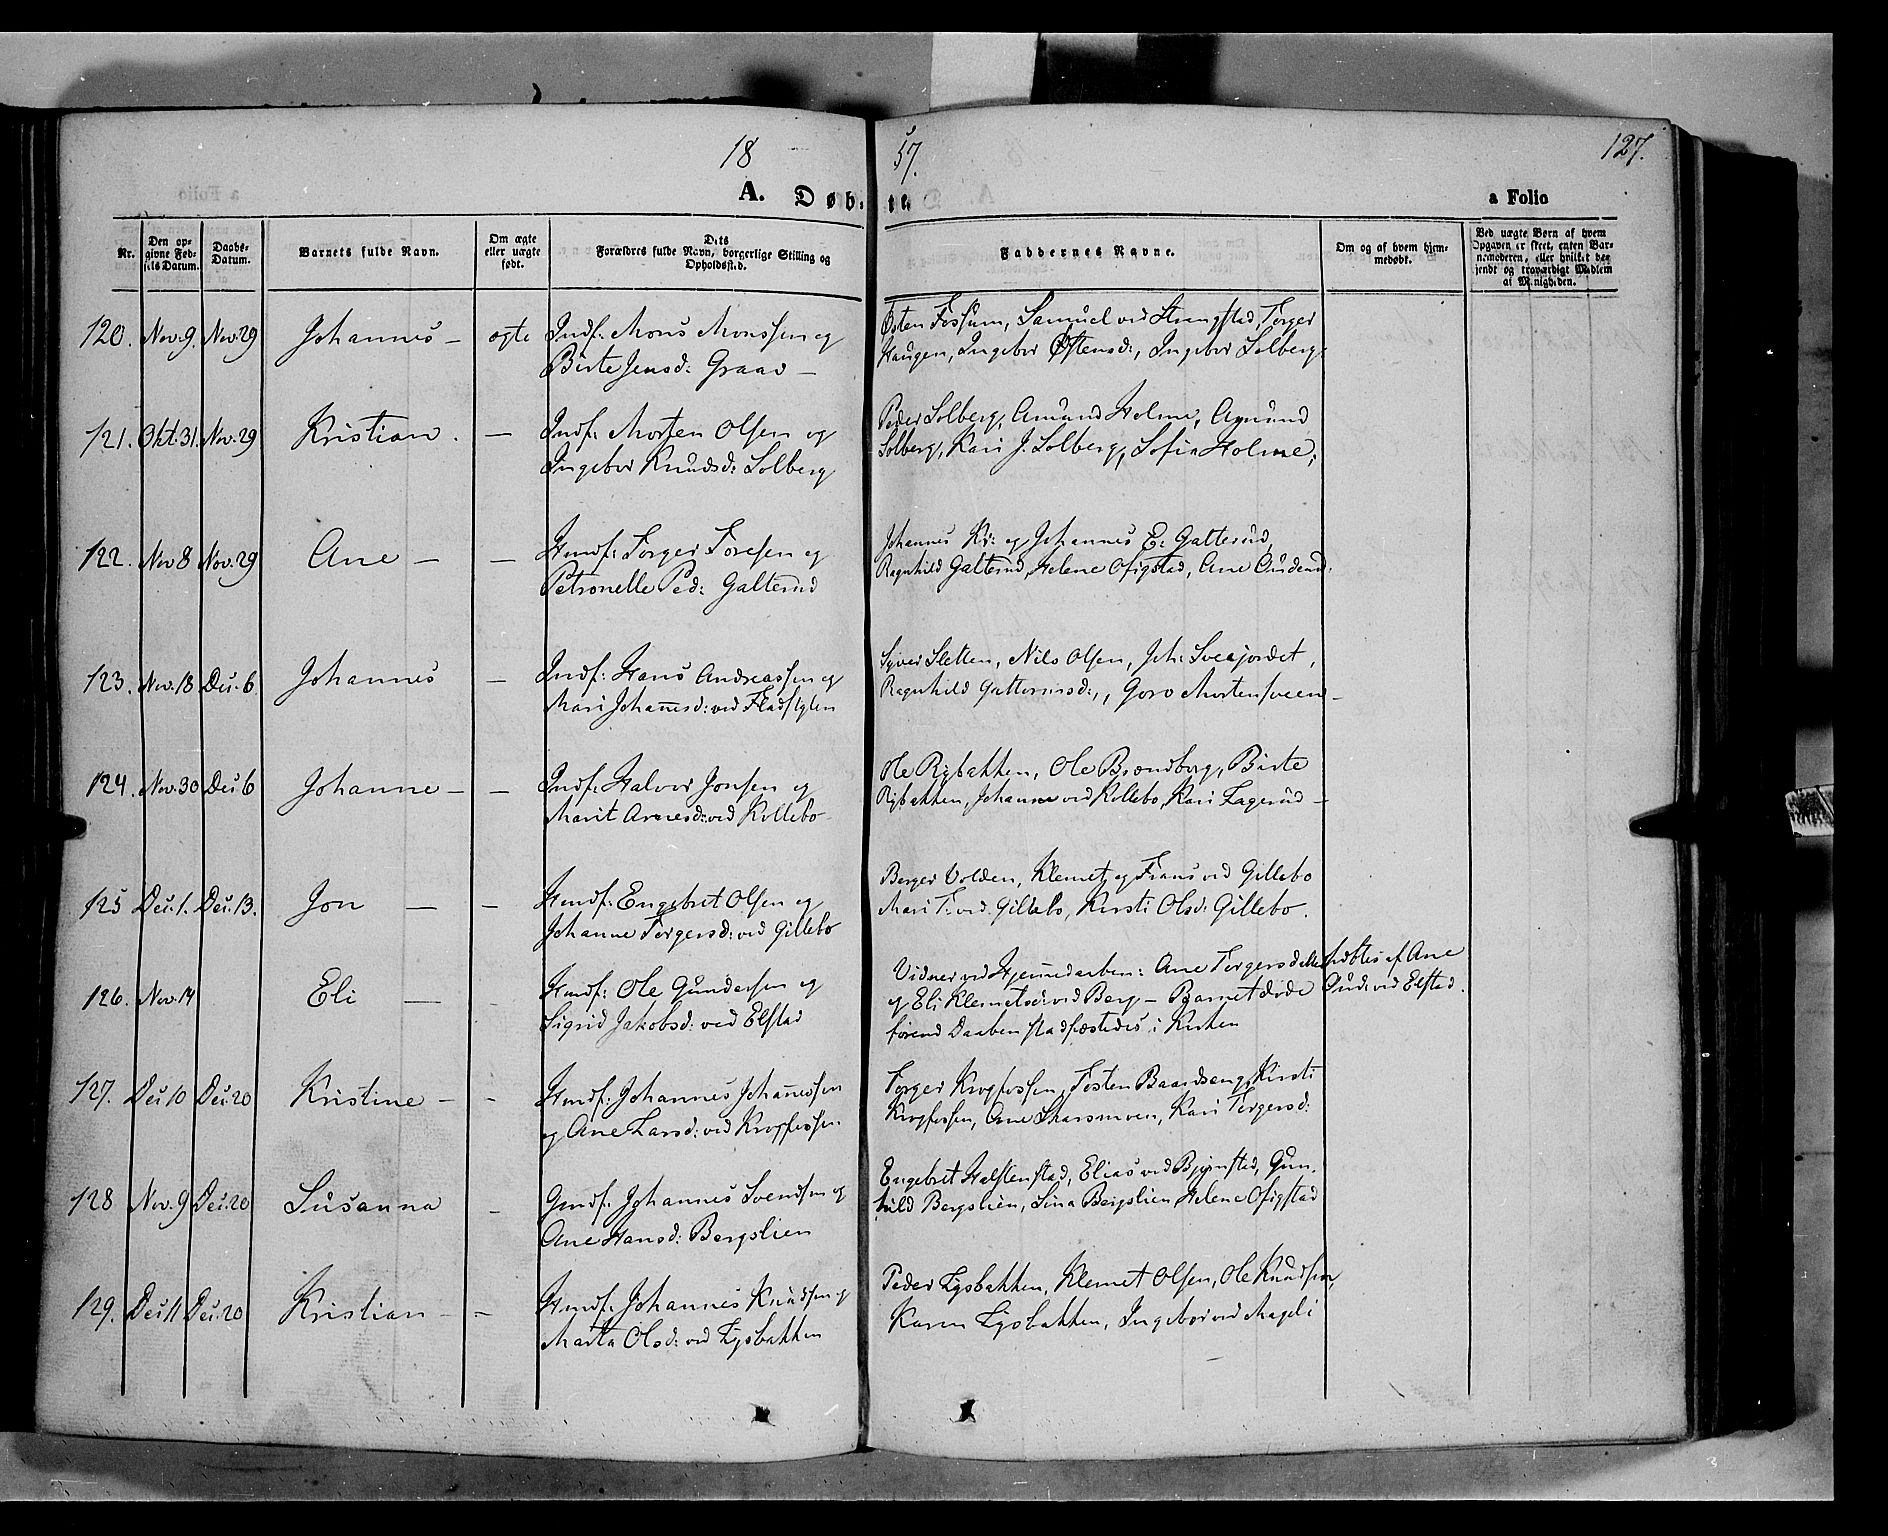 18 57. 127.
A. Døb- te. a Folio
Nr.
Den op-
givne Fød-
sels Datum.
Daabs-
Datum.
Barnets fulde Navn.
Om ægte
eller uægte
født.
Dets
Forældres fulde Navn, borgerlige Stilling og
Opholdssted.
Faddernes Navne.
Om og af hvem hjem-
medøbt.
Ved uægte Børn af hvem
Opgaven er skeet, enten Bar-
nemoderen, eller hvilket bee-
jendt og troværdigt Medlem
af Menigheden.
120. Nov. 9. Nov. 29 Johannes — ægte Indf: Mons Monssen og
Birte Jensd: Graav —
Østen Fossum, Samuel ved Strangstad, Torger
Haugen, Ingebor Østensd:, Ingebor Solberg:
121. Okt. 31. Nov. 29 Kristian. — Indf: Morten Olsen og
Ingebor Knudsd: Solberg
Peder Solberg, Amund Holme, Amund
Solberg, Kari J. Solberg, Sofia Holme,
122. Nov 8 Nov. 29 Ane — — Husmf: Torger Toresen og
Petronelle Ped: Galterud
Johannes Kr: og Johannes E: Galterud,
Ragnhild Galterud, Helene Ofigstad, Ane
123. Nov. 18 Dec. 6 Johannes — Indf: Hans Andreassen og
Mari Johannesd: ved Fladstylen
Syver Sletten, Nils Olsen, Joh: Sveajordet,
Ragnhild Guttormsd:, Goro Mortensveen —
124. Nov. 30 Dec 6 Johanne — — Indf: Halvor Jonsen og
Marit Arnesd: ved Kollebo
Ole Rybakken, Ole Brændborg, Birte
Rybakken, Johanne ved Kollebo, Kari Fagerud —
125 Dec. 1. Dec. 13. Jon — — Husmf: Engebret Olsen og
Johanne Torgersd: ved Gillebo
Berger Volden, Klemet og Frans ved Gillebo
Mari T: ved Gillebo, Kirsti Olsd: Gillebo.
126. Nov. 14 Eli — - Husmf: Ole Gundersen og
Sigrid Jakobsd: ved Elstad
Vidner ved Hjemmedaaben: Ane Torgersdatter
og Eli Klemetsd: ved Berg — Barnet døde
førend Daaben stadfæstedes i Kirken
døbtes af Ane
Gud: ved Elstad.
127. Dec 10 Dec. 20 Kristine — - Husmf: Johannes Johannessen
og Ane Larsd: ved Krogfossen
Torger Krogfossen, Tosten Baardseng, Kirsti
Krogfossen, Ane Skarsmoen, Kari Torgersd:
128 Nov. 9 Dec. 20 Susanna - Gmdf: Johannes Svendsen og
Ane Hansd: Bergslien
Engebret Halstenstad, Elias ved Bjørnstad, Gun-
hild Bergslien, Sina Bergslien, Helene Ofigstad
129. Dec 11 Dec. 20 Kristian — - Husmf: Johannes Knudsen og
Marta Olsd: ved Lysbakken
Peder Lysbakken, Klemet Olsen, Ole Knudsen
Karen Lysbakken, Ingebor ved Mageli
3